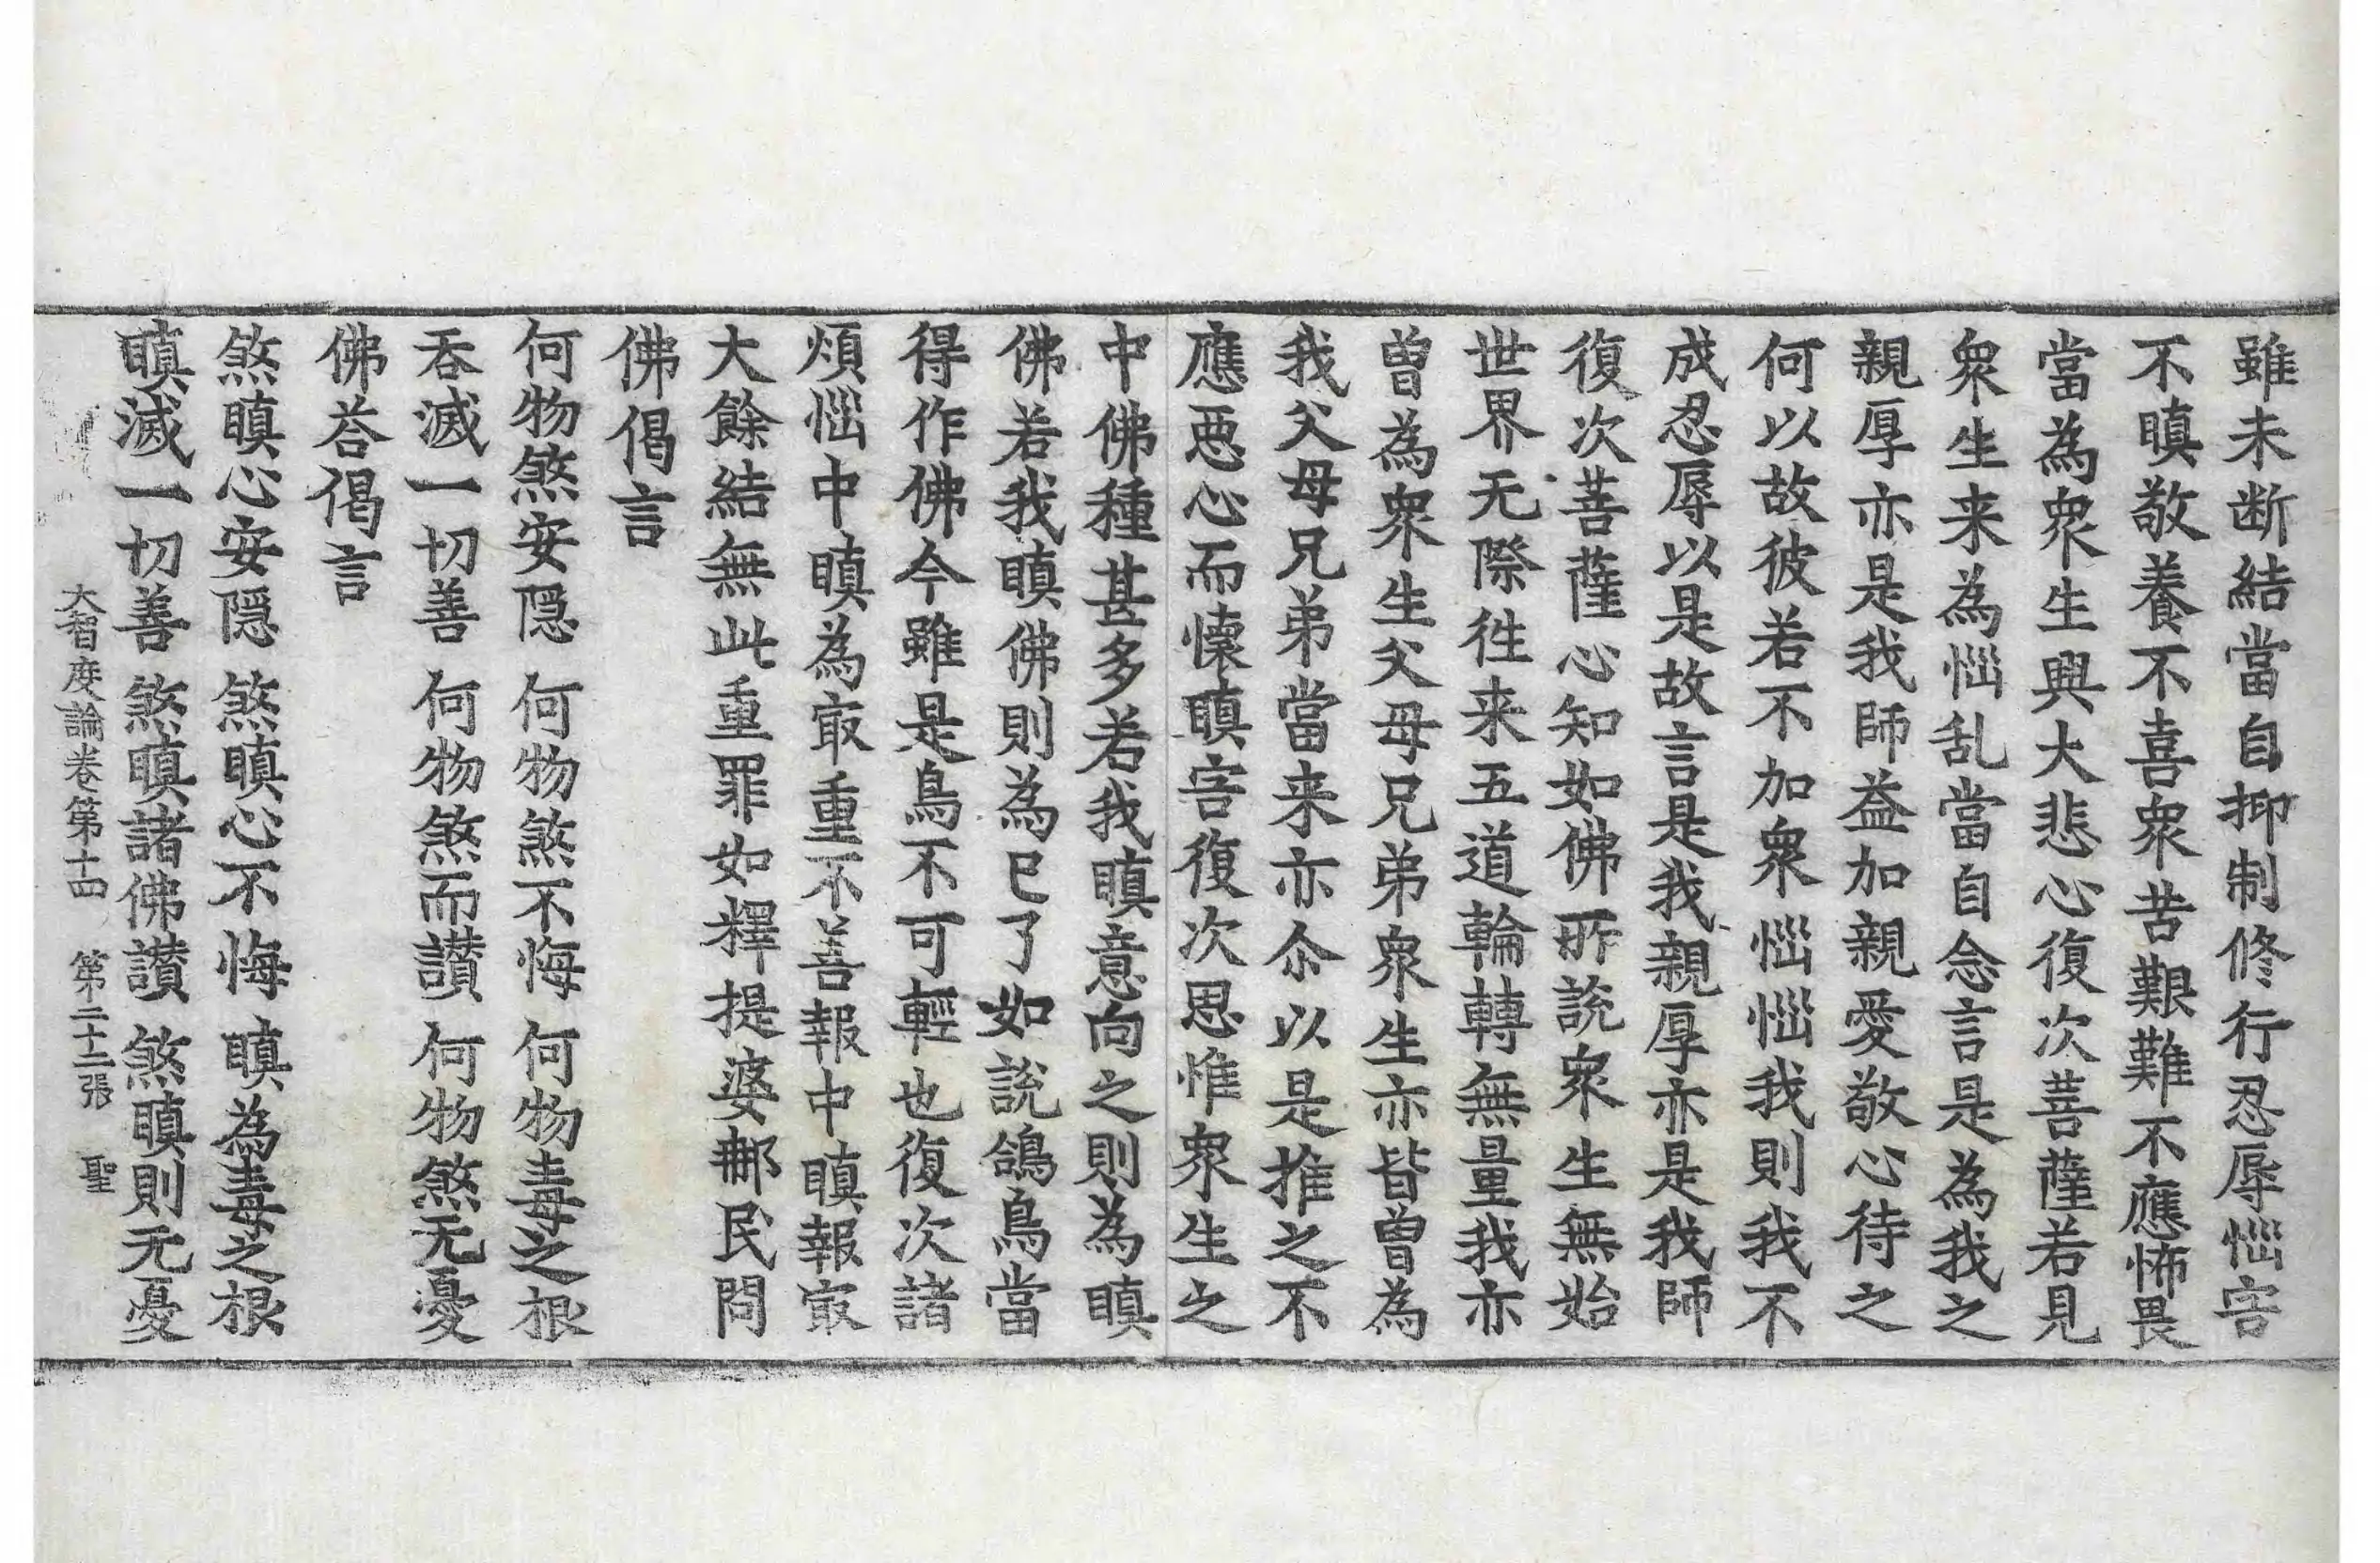 雖未断結當自抑制修行忍辱惱害
不瞋敬養不喜衆苦艱難不應怖畏
當為衆生興大悲心復次菩薩若見
衆生来為惱乱當自念言是為我之
親厚亦是我師益加親愛敬心待之
何以故彼若不加衆惱惱我則我不
成忍辱以是故言是我親厚亦是我師
復次菩薩心知如佛所說衆生無始
世界无際往来五道輪轉無量我亦
曾為衆生父母兄弟衆生亦皆曾為
我父母兄弟當来亦尒以是推之不
應惡心而懷瞋害復次思惟衆生之
中佛種甚多若我瞋意向之則為瞋
佛若我瞋佛則為已了如說鴿鳥當
得作佛今雖是鳥不可輕也復次諸
煩惱中瞋為㝡重不善報中瞋報㝡
大餘結無此重罪如釋提婆㨹民問
佛偈言
何物煞安隠　何物煞不悔　何物毒之根
吞滅一切善　何物煞而讃　何物煞无憂
佛荅偈言
煞瞋心安隠　煞瞋心不悔　瞋為毒之根
瞋滅一切善　煞瞋諸佛讃　煞瞋則无憂
大智度論卷第十四　第二十二張　聖